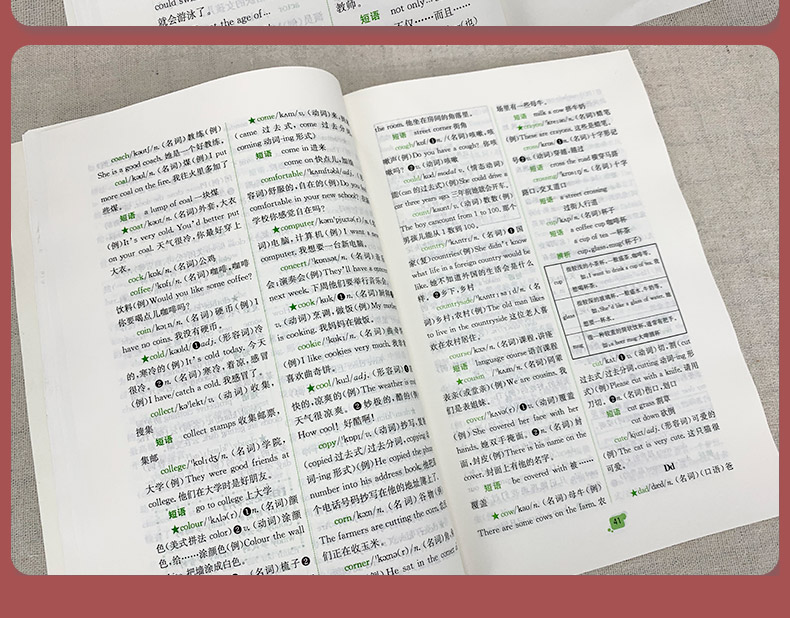 就会游泳了。
教师。
短语 not only...
不仅……而且……
coach/kəʊtʃ/n. (名词)教练(例)
She is a good coach. 她是一个好教练。
coal/kəʊl/n. (名词)煤(例)I put
more coal on the fire. 我往火里多加了
些煤。
短语 a lump of coal 一块煤
★coat/kəʊt/n. (名词)外套,大衣
(例)It's very cold. You'd better put
on your coat. 天气很冷,你最好穿上
大衣。
cock/kɒk/n. (名词)公鸡
coffee/'kɒfi/n. (名词)咖啡,咖啡
饮料(例)Would you like some coffee?
你要喝点儿咖啡吗?
coin/kɔɪn/n. (名词)硬币(例)I
have no coins. 我没有硬币。
★cold/kəʊld/❶adj. (形容词)冷
的,寒冷的(例)It's cold today. 今天
很冷。❷n. (名词)寒冷,着凉,感冒
(例)I have/catch a cold. 我感冒了。
collect/kə'lekt/v. (动词)收集,
搜集
短语 collect stamps 收集邮票,
集邮
college/'kɒlɪdʒ/n. (名词)学院,
大学(例)They were good friends at
college. 他们在大学时是好朋友。
短语 go to college 上大学
★colour/'kʌlə(r)/❶n. (名词)颜
色(美式拼法 color)❷v. (动词)涂颜
色,给……涂颜色(例)Colour the wall
把墙涂成白色。
(名词)梳子❷
★come/kʌm/v. (动词)来
(came 过去式, come 过去分
coming 动词-ing形式)
短语 come in 进来
come on 快点儿,加
comfortable/
容词)舒服的,自在的(例)Do you
comfortable in your new school?
学校你感觉自在吗?
★computer/kəm'pjuːtə(r)/n. (名
词)电脑,计算机(例)I want a
computer. 我想要一台新电脑。
concert/'kɒnsət/n. (名词)
会;演奏会(例)They'll have a
next week. 下周他们要举行音乐会
★cook/kʊk/❶n. (名词)厨师
v. (动词)烹调,做饭(例)My
is cooking. 我妈妈在做饭。
cookie/'kʊki/n. (名词)
(例)I like cookies very much. 我非
喜欢曲奇饼。
★cool/kuːl/adj. (形容词)❶
快的,凉爽的(例)The weather is
天气很凉爽。❷妙极的,酷的
How cool! 好酷啊!
copy/'kɒpi/v. (动词)抄写,复
(copied 过去式/过去分词, copying
词-ing形式)(例)He copied the
number into his address book. 他把
个电话号码抄写在他的地址簿上了。
corn/kɔːn/n. (名词)谷物
The farmers are cutting the corn.
们正在收玉米。
corner/'kɔːnə(r)/n. (名词)角
He sat in the corner
the room. 他坐在房间的角落里。
短语 street corner 街角
cough/kɒf/❶n. (名词)咳嗽,咳
嗽声(例)Do you have a cough? 你咳
嗽吗?❷v. (动词)咳嗽
could/kʊd/modal v. (情态动词)
能(can 的过去式)(例)She could drive a
car three years ago. 三年前她就会开车。
count/kaʊnt/v. (动词)数数(例)
The boy can count from 1 to 100. 那个
男孩儿能从1数到100。
country/'kʌntri/n. (名词)❶国
家(复)countries(例)She didn't know
what life in a foreign country would be
like. 她不知道外国的生活会是什么
样。❷乡下,乡村
countryside/'kʌntrisaɪd/n. (名
词)乡村,农村(例)The old man likes
to live in the countryside 这位老人喜
欢在农村居住。
course/kɔːs/n. (名词)课程,讲座
短语 language course 语言课程
★cousin/'kʌzn/n. (名词)同辈
表亲(或堂亲)(例)We are cousins. 我
们是表姐妹。
cover/'kʌvə(r)/❶v. (动词)覆盖
(例)She covered her face with her
hands. 她双手掩面。❷n. (名词)封
面,封皮(例)There is his name on the
cover. 封面上有他的名字。
短语 be covered with 被……
覆盖
★cow/kaʊ/n. (名词)母牛(例)
There are some cows on the farm. 农
场里有一些母牛。
短语 milk a cow 挤牛奶
★crayon/'kreɪən/n. (名词)蜡笔
(例)These are crayons. 这些是蜡笔。
cross/krɒs/❶n. (名词)十字形记
号❷v. (动词)穿越,越过
短语 cross the road 横穿马路
crossing/'krɒsɪŋ/n. (名词)十字
路口,交叉道口
短语 a street crossing
过街人行道
cup/kʌp/n. (名词)杯子
短语 a coffee cup 咖啡杯
a cup of tea 一杯茶
辨析 cup, glass, mug(杯子)
cup
glass
mug
cut/kʌt/❶v. (动词)切,割(cut
过去式/过去分词, cutting 动词-ing形
式)(例)Please cut with a knife. 请用
刀切。❷n. (名词)伤口,划口
短语 cut grass 割草
cut down 砍倒
cute/kjuːt/adj. (形容词)可爱的
(例)The cat is very cute. 这只猫很
可爱。
Dd
★dad/dæd/n. (名词)(口语)爸
41